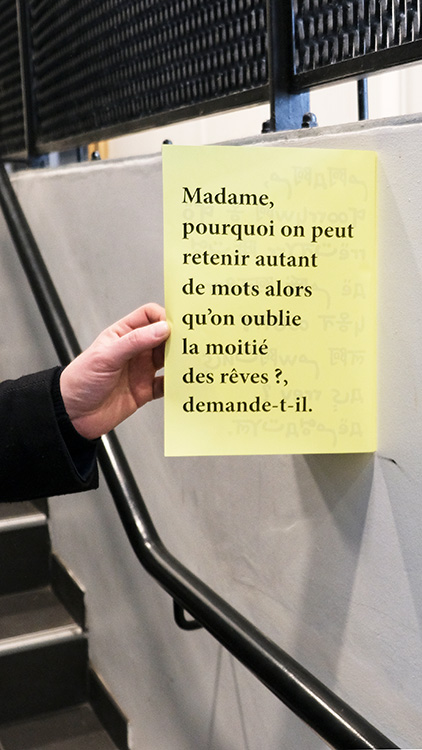 Madame,
pourquoi on peut
retenir autant
de mots alors
qu’on oublie
la moitié
des rêves ?,
demande-t-il.